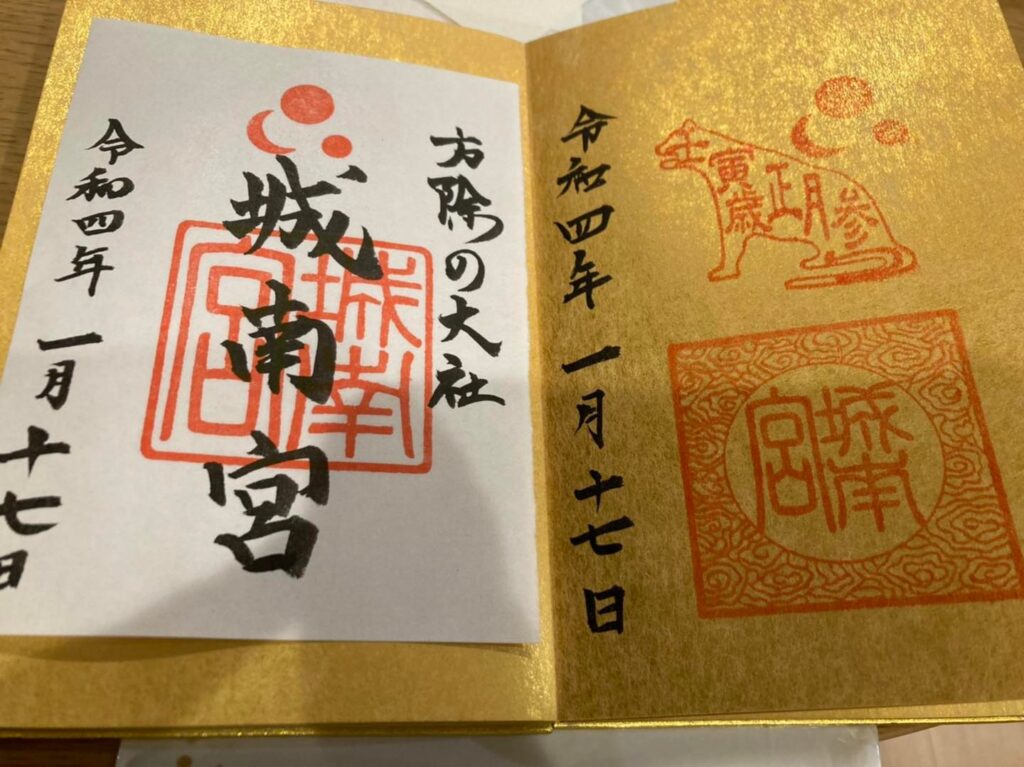 令和四年 一月十七日
壬寅歳正月参
城南宮
方除の大社
城南宮
城南宮
令和四年 一月十七日